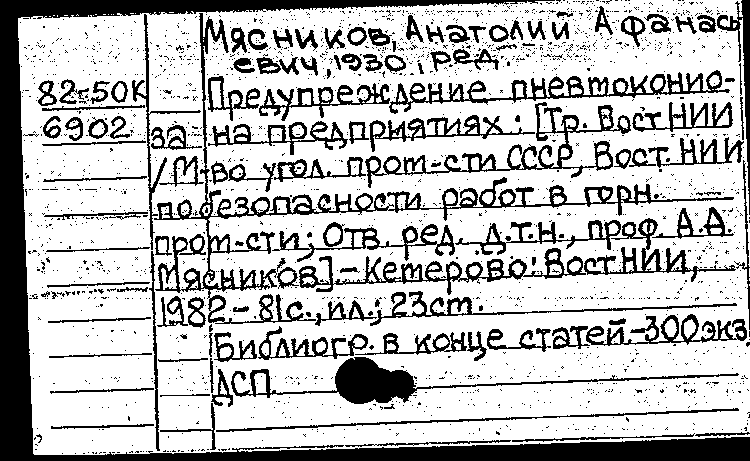 Мясников, Анатолий Афанась
евич, 1930, ред.
82-50К Предупреждение пневмоконио-
6902 за на предприятиях: [Тр. ВостНИИ
/М-во угол. пром-сти СССР, Вост. НИИ
по безопасности работ в горн.
пром-сти; Отв. ред. д.т.н., проф. А.А.
Мясников].-Кемерово: ВостНИИ,
1982.-81с., ил.; 23см.
Библиогр. в конце статей.-300экз
ДСП.